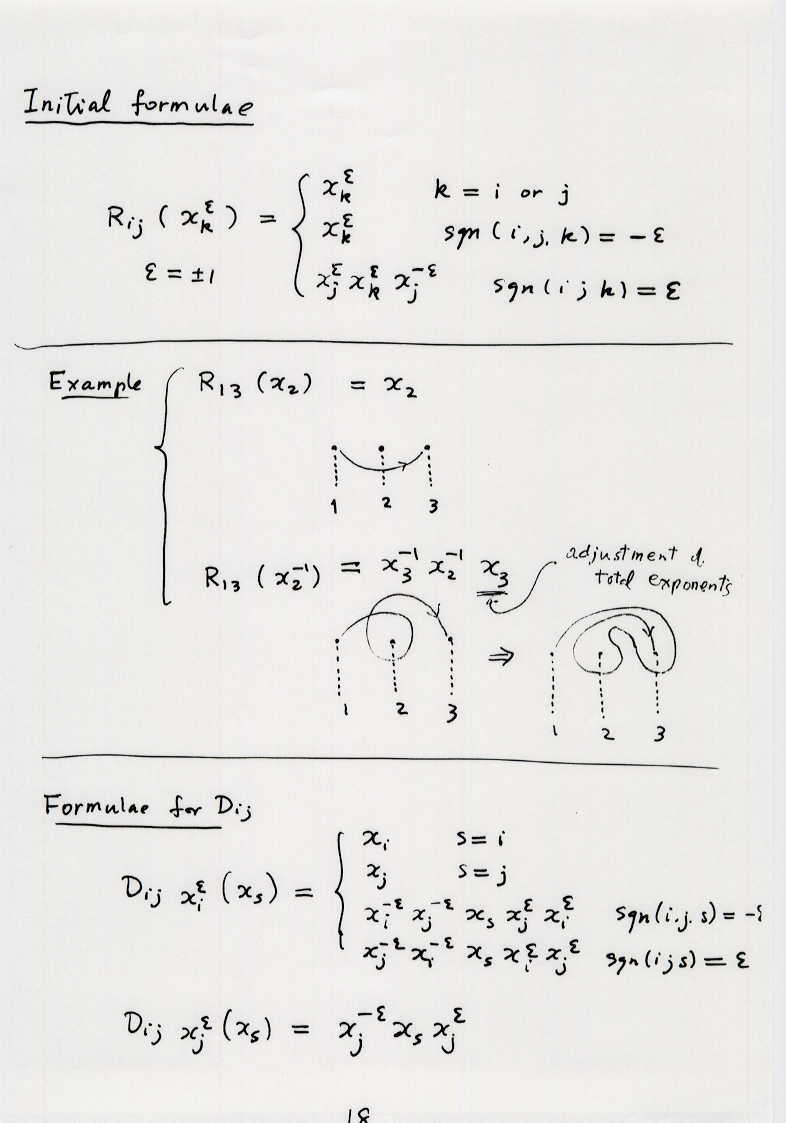 Initial formulae
R_{ij} ( x_k^ε ) = { x_k^ε   k = i or j
x_k^ε   sgn ( i, j, k ) = - ε
ε = ±1   x_j^ε x_k^ε x_j^{-ε}   sgn ( i j k ) = ε
Example { R_{13} ( x_2 ) = x_2
1 2 3
R_{13} ( x_2^{-1} ) = x_3^{-1} x_2^{-1} x_3
adjustment
total exponents
⇒
1 2 3   1 2 3
Formulae for D_{ij}
D_{ij} x_i^ε ( x_s ) = { x_i   s = i
x_j   s = j
x_i^{-ε} x_j^{-ε} x_s x_j^ε x_i^ε   sgn ( i. j. s ) = - ε
x_j^{-ε} x_i^{-ε} x_s x_i^ε x_j^ε   sgn ( i j s ) = ε
D_{ij} x_j^ε ( x_s ) = x_j^{-ε} x_s x_j^ε
18